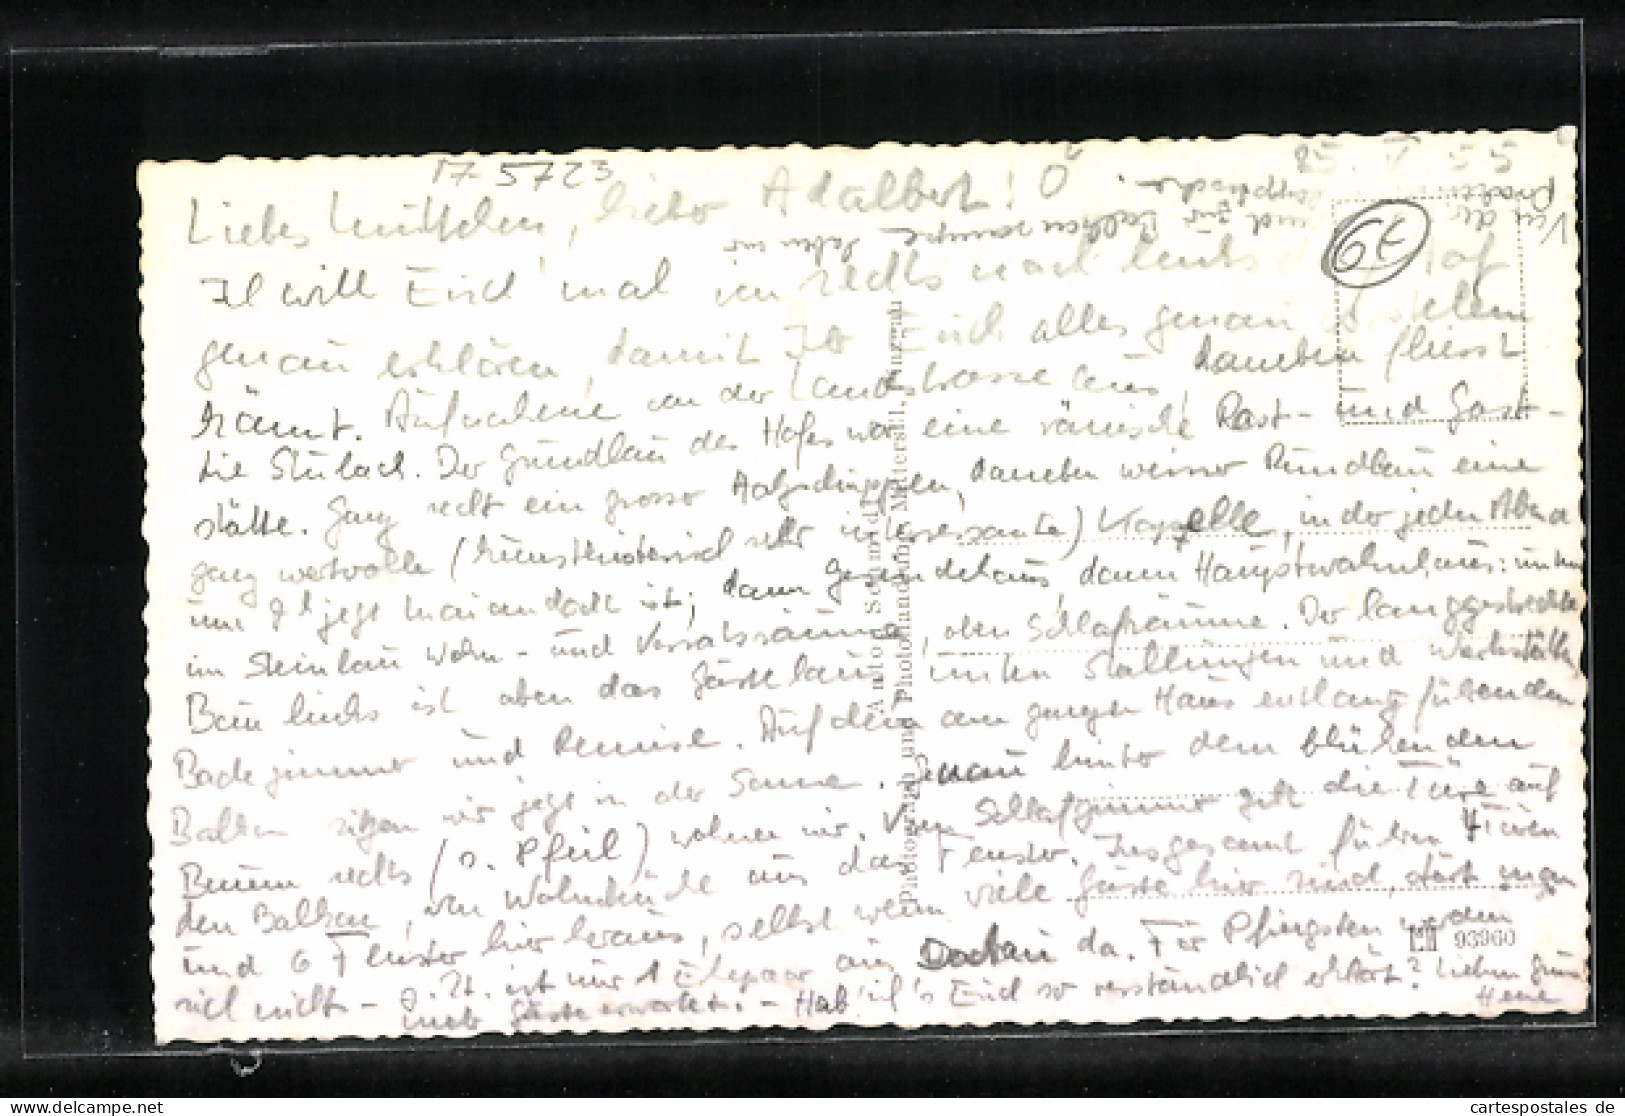 175723
25. V. 55
Liebes Muttchen, lieber Adalbert! Ö
Von der
und zur Balkon
haben wir
79
Ich will Euch mal von rechts nach links Hof
genau erklären, damit Ihr Euch alles genau
könnt. Aufnahme von der Landstrasse aus, daneben fliesst
die Stubach. Der Grundbau des Hofes war eine römische Rast- und Gast-
stätte. Ganz recht ein grosser daneben weisser Rundbau eine
ganz wertvolle (kunsthistorisch sehr interessante) Kapelle, in der jeden Abend
um 8 h jetzt Maiandacht ist; dann Gesindehaus, dann Hauptwohnhaus: unten
im Steinbau Wohn- und Vorratsräume, oben Schlafräume. Der langgestreckte
Bau links ist oben das Gästehaus, unten Stallungen und Werkstätten
Badezimmer und Remise. Auf dem am ganzen Haus entlang führenden
Balkon sitzen wir jetzt in der Sonne. Genau hinter dem blühenden
Baum rechts (s. Pfeil) wohnen wir. Vom Schlafzimmer geht die Türe auf
den Balkon, von Wohnküche aus das Fenster. Insgesamt führen 4 Türen
und 6 Fenster hier heraus, selbst wenn viele Gäste hier sind, stört man
sich nicht - z. Zt. ist nur 1 Ehepaar aus Dachau da. Für Pfingsten werden
mehr Gäste erwartet. - Hab' ich's Euch so verständlich erklärt? Lieben
Photograph und Photohandlung
Anton Schmid
Mittersill, Pinzgau
93960
cartespostales de